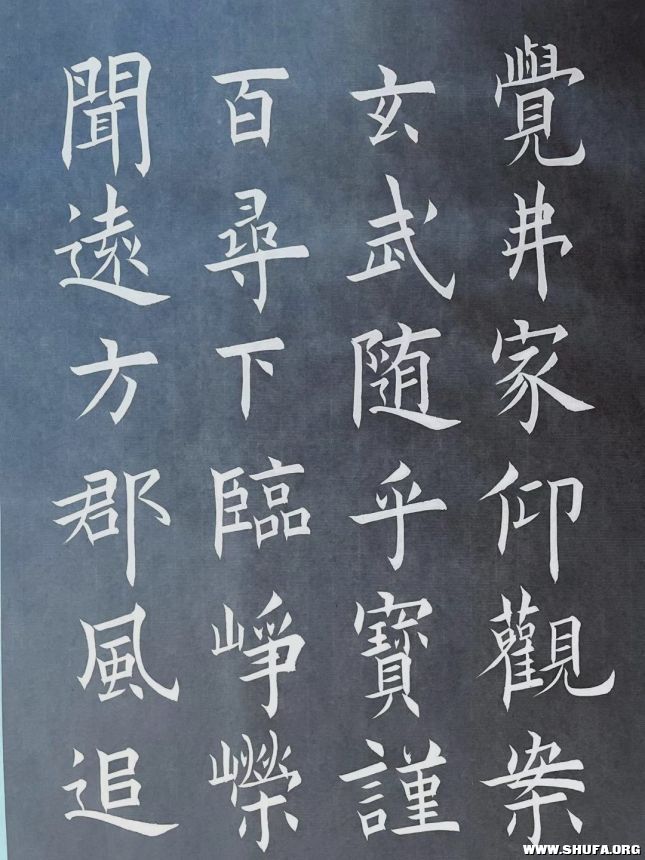 覺弗家仰觀案
玄武随乎寶謹
百尋下臨崢嶸
聞遠方郡風追
WWW.SHUFA.ORG